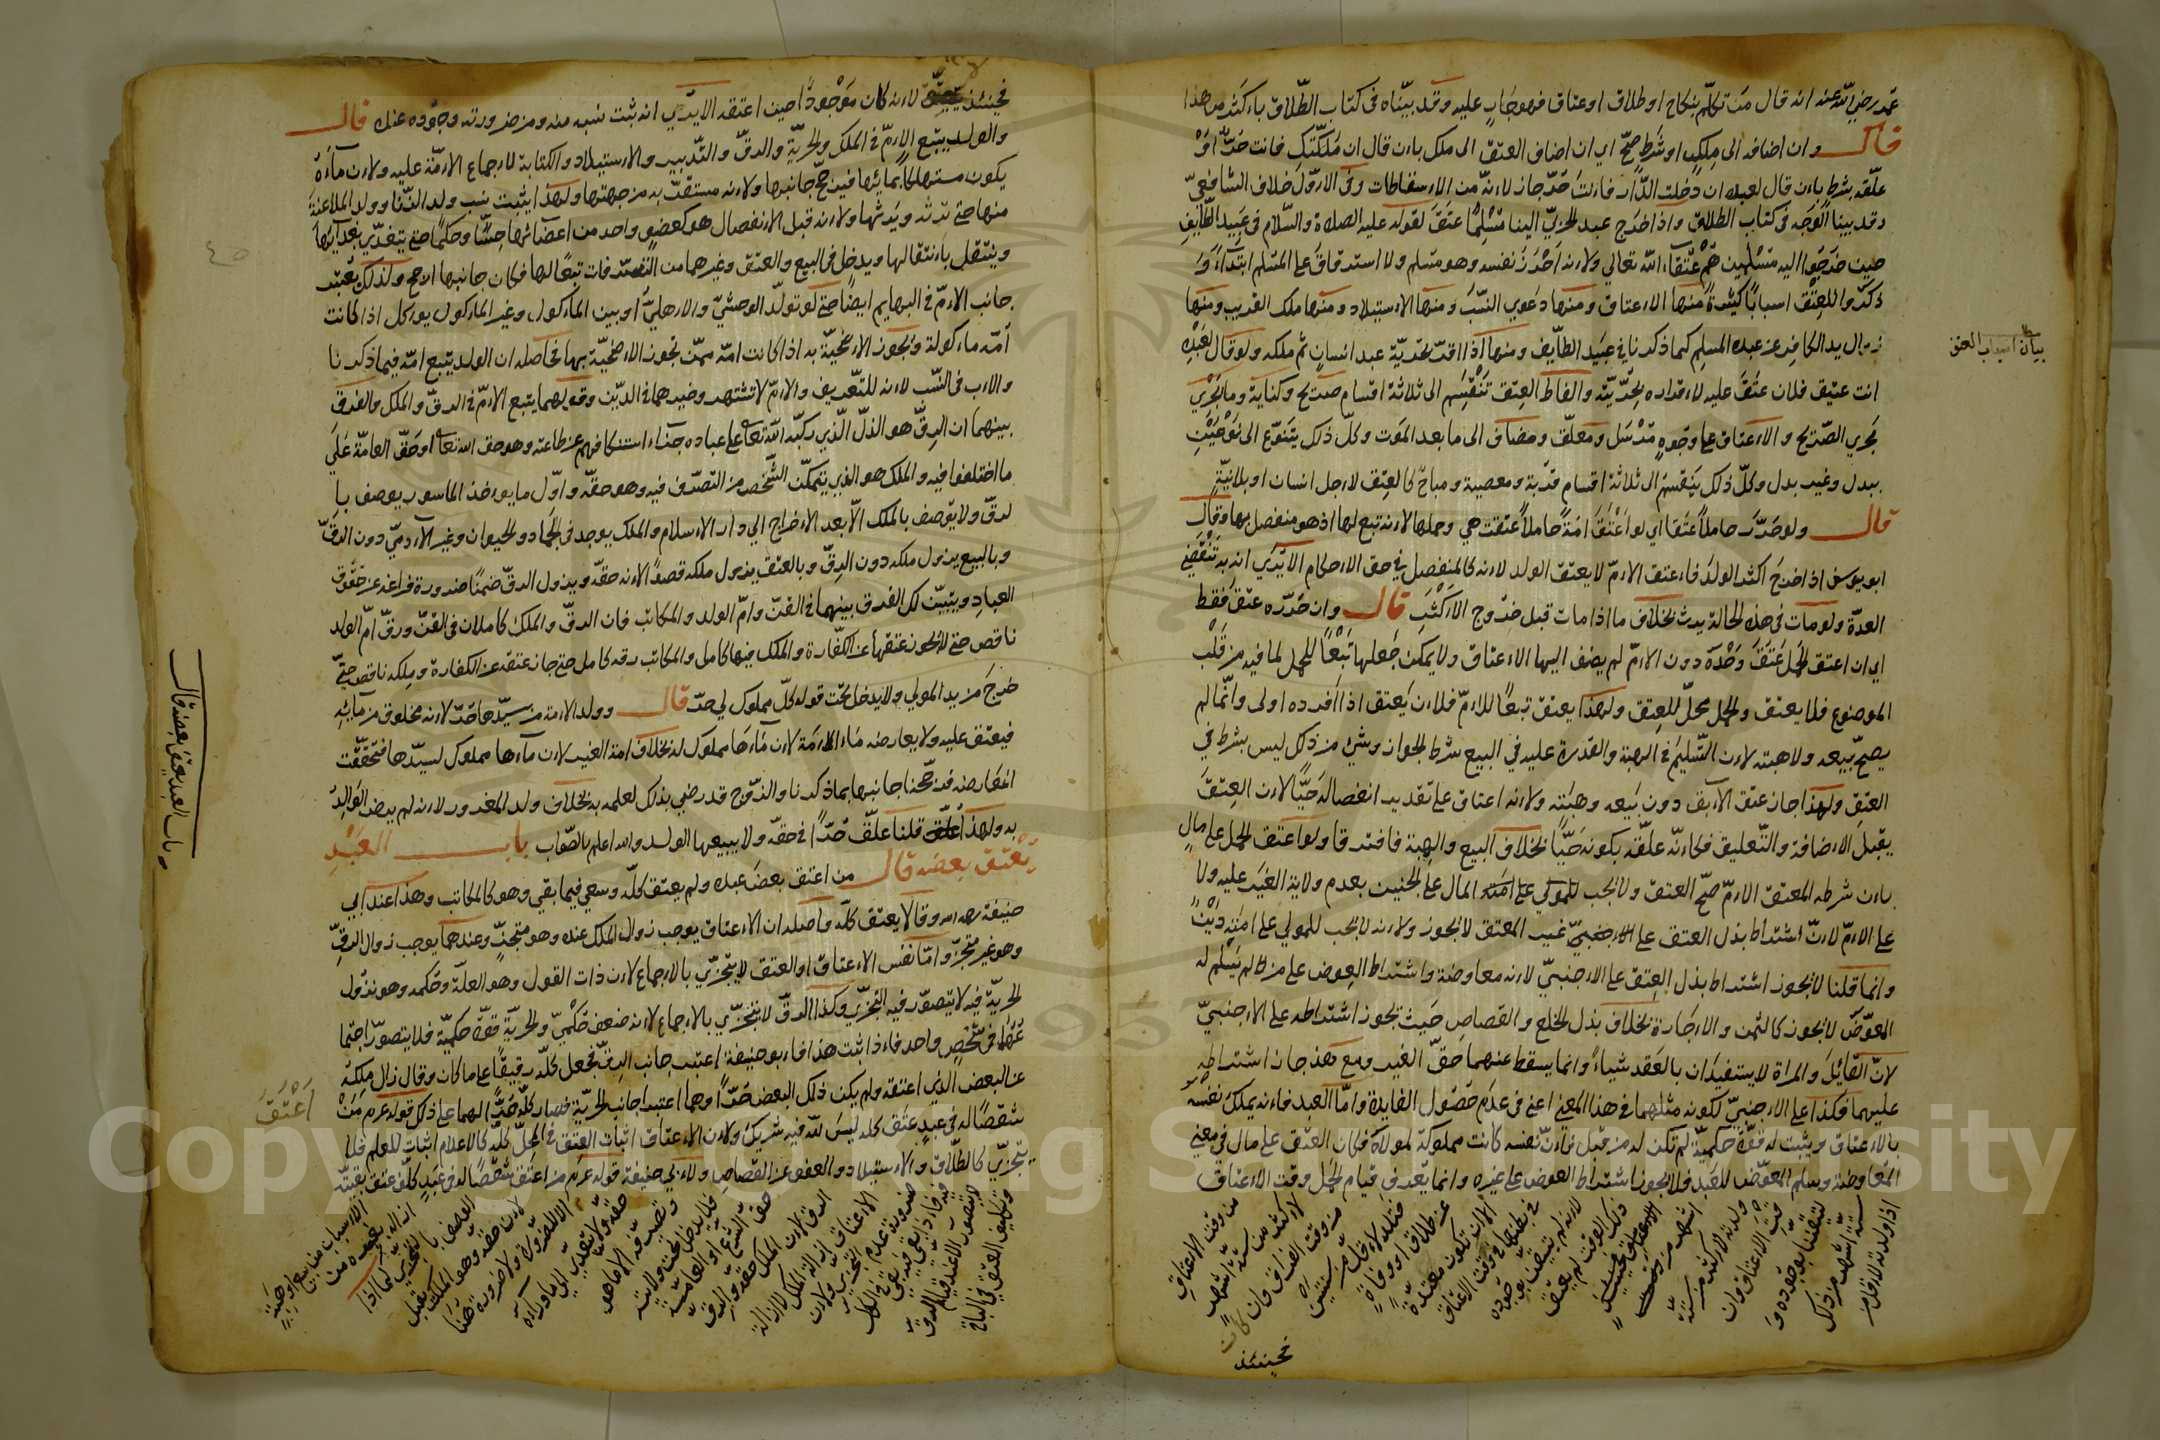 عمر رضي الله عنه انه قال من تكلم بنكاح او طلاق او عتاق فهو جايز عليه وقد بيناه في كتاب الطلاق باكثر من هذا
قال وان اضافه الى ملك او شرط صح اي ان اضاف العتق الى ملك بان قال ان ملكتك فانت حر او
علقه بشرط بان قال لعبده ان دخلت الدار فانت حر جاز لانه من الاسقاطات وفي الاول خلاف الشافعي
وقد بينا الوجه في كتاب الطلاق واذا خرج عبد الحربي الينا مسلما عتق لقوله عليه الصلاة والسلام في عبيد الطايف
حين خرجوا اليه مسلمين هم عتقاء الله تعالى ولانه احرز نفسه وهو مسلم ولا استرقاق على المسلم ابتداء و
ذكروا للعتق اسبابا كثيرة منها الاعتاق ومنها دعوى النسب ومنها الاستيلاد ومنها ملك القريب ومنها
زوال يد الكافر عن عبده المسلم كما ذكرنا في عبيد الطايف ومنها اذا اقر بحرية عبد انسان ثم ملكه ولو قال لعبده
بيان اسباب العتق
انت عتيق فلان عتق عليه لاقراره بحريته والفاظ العتق تنقسم الى ثلاثة اقسام صريح وكناية وما يجري
مجرى الصريح والاعتاق على وجوه مرسل ومعلق ومضاف الى ما بعد الموت وكل ذلك يتنوع الى نوعين
ببدل وغير بدل وكل ذلك ينقسم الى ثلاثة اقسام قربة ومعصية ومباح كالعتق لاجل انسان او بلا نية
قال ولو حرر حاملا عتقا اي لو اعتق امة حاملا عتقت هي وحملها لانه تبع لها اذ هو متصل بها وقال
ابو يوسف اذا خرج اكثر الولد فاعتق الام لا يعتق الولد لانه كالمنفصل في حق الاحكام الا يرى انه به تنقضي
العدة ولو مات في هذه الحالة يرث بخلاف ما اذا مات قبل خروج الاكثر قال وان حرره عتق فقط
اي ان اعتق الحمل عتق وحده دون الام لم يضف اليها الاعتاق ولا يمكن جعلها تبعا للحمل لما فيه من قلب
الموضوع فلا يعتق والحمل محل للعتق ولهذا يعتق تبعا للام فلان يعتق اذا افرده اولى وانما لم
يصح بيعه ولا هبته لان التسليم في الهبة والقدرة عليه في البيع شرط الجواز وشيء من ذلك ليس بشرط في
العتق ولهذا جاز عتق الآبق دون بيعه وهبته ولانه اعتاق على تقدير انفصاله حيا لان العتق
يقبل الاضافة والتعليق فكانه علقه بكونه حيا بخلاف البيع والهبة فافترقا ولو اعتق الحمل على مال
بان شرطه المعتق الام صح العتق ولا يجب للمولى على امته المال على الجنين بعدم ولاية الغير عليه ولا
على الام لان اشتراط بدل العتق على الاجنبي غير المعتق لا يجوز ولانه لا يجب للمولى على امته دين
وانما قلنا لا يجوز اشتراط بدل العتق على الاجنبي لانه معاوضة واشتراط العوض على من لم يسلم له
المعوض لا يجوز كالثمن والاجارة بخلاف بدل الخلع والقصاص حيث يجوز اشتراطه على الاجنبي
لان القاتل والمراة لا يستفيدان بالعقد شيا وانما يسقط عنهما حق الغير ومع هذا جاز اشتراطه
عليهما فكذا على الاجنبي لكونه مثلهما في هذا المعنى اعني في عدم حصول الفايدة واما العبد فانه يملك نفسه
بالاعتاق ويثبت له قوة حكمية لم تكن له من قبل لان نفسه كانت مملوكة لمولاه فكان العتق على مال في معنى
المعاوضة وسلم المعوض للعبد فلا يجوز اشتراط العوض على غيره وانما يعرف قيام الحمل وقت الاعتاق
اذا ولدته لاقل من
ستة اشهر من ذلك
لتيقننا بوجوده و
قت الاعتاق وان
ولدته لاكثر من ستة
اشهر من
ذلك الوقت لم يعتق
لانه لم يتيقن بوجوده
في بطنها وقت الاعتاق
الا ان تكون معتدة
عن طلاق او وفاة
فتلد لاقل من سنتين
من وقت الفراق وان كان
لاكثر من ستة اشهر
من وقت الاعتاق
فحينئذ
فحينئذ يعتق لانه كان موجودا حين اعتقه الا يرى انه ثبت نسبه منه ومن ضرورته وجوده عنده قال
والولد يتبع الام في الملك والحرية والرق والتدبير والاستيلاد والكتابة لاجماع الامة عليه ولان ماءه
يكون مستهلكا بمائها فيرجح جانبها ولانه متيقن به من جهتها ولهذا يثبت نسب ولد الزنا وولد الملاعنة
منها حتى ترثه ويرثها ولانه قبل الانفصال هو كعضو واحد من اعضائها حسا وحكما حتى يتغذى بغذائها
وينتقل بانتقالها ويدخل في البيع والعتق وغيرهما من التصرفات تبعا لها فكان جانبها ارجح ولذلك يعتبر
جانب الام في البهايم ايضا حتى لو تولد بين الوحشي والاهلي او بين الماكول وغير الماكول يوكل اذا كانت
امه ماكولة وتجوز الاضحية به اذا كانت امه ممن تجوز الاضحية بها فحاصله ان الولد يتبع امه فيما ذكرنا
والاب في النسب لانه للتعريف والام لا تشتهر وخيرهما في الدين وقولهما يتبع الام في الرق والملك والفرق
بينهما ان الرق هو الذل الذي ركبه الله تعالى على عباده جزاء استنكافهم عن طاعته وهو حق الله تعالى او حق العامة على
ما اختلفوا فيه والملك هو الذي يتمكن الشخص من التصرف فيه وهو حقه واول ما يوخذ الماسور يوصف با
لرق ولا يوصف بالملك الا بعد الاخراج الى دار الاسلام والملك يوجد في الجماد والحيوان وغير الآدمي دون الرق
وبالبيع يزول ملكه دون الرق وبالعتق يزول ملكه قصدا لانه حقه ويزول الرق ضمنا ضرورة فراغه عن حقوق
العباد ويتبين لك الفرق بينهما في القن وام الولد والمكاتب فان الرق والملك كاملان في القن ورق ام الولد
ناقص حتى لا يجوز عتقها عن الكفارة والملك فيها كامل والمكاتب رقه كامل حتى جاز عتقه عن الكفارة وملكه ناقص حتى
خرج من يد المولى ولا يدخل تحت قوله كل مملوك لي حر قال وولد الامة من سيدها حر لانه مخلوق من مائه
فيعتق عليه ولا يعارضه ماء الامة لان ماءها مملوك له بخلاف امة الغير لان ماءها مملوك لسيدها فتحققت
المعارضة فرجحنا جانبها بما ذكرنا والزوج قد رضي بذلك لعلمه به بخلاف ولد المغرور لانه لم يرض الوالد
به ولهذا قلنا علق حرا في حقه ولا يبيعها الولد والله اعلم بالصواب باب العبد
يعتق بعضه قال من اعتق بعض عبده ولم يعتق كله وسعى فيما بقي وهو كالمكاتب وهذا عند ابي
باب العبد يعتق بعضه قال
حنيفة رحمه الله وقالا يعتق كله واصله ان الاعتاق يوجب زوال الملك عنده وهو متجز وعندهما يوجب زوال الرق
وهو غير متجز واما نفس الاعتاق او العتق لا يتجزى بالاجماع لان ذات القول وهو العلة وحكمه وهو نزول
الحرية فيه لا يتصور فيه التجزي وكذا الرق لا يتجزى بالاجماع لانه ضعف حكمي والحرية قوة حكمية فلا يتصور اجتما
عهما في شخص واحد فاذا ثبت هذا فابو حنيفة اعتبر جانب الرق فجعل كله رقيقا على ما كان وقال زال ملكه
عن البعض الذي اعتقه ولم يكن ذلك البعض حرا وهما اعتبرا جانب الحرية فصار كله حرا لهما على ذلك قوله عم من
اعتق
شقصا له في عبد عتق كله ليس لله فيه شريك ولان الاعتاق اثبات العتق في المحل كله كالاعلام اثبات للعلم فلا
يتجزى كالطلاق والاستيلاد والعفو عن القصاص ولابي حنيفة قوله عم من اعتق شقصا له في عبد كلف عتق بقيته
وتكليف العتق في الباقي
لا يتصور الا عند قيام الرق
ضرورة عدم التجزي ولان
الاعتاق ازالة الملك لا ازالة
الرق لان الملك حقه والرق
حق الشرع او العامة
فلا يدخل تحت ولايته
وتصرفه الا ما هو
حقه ولا يتعدى الى ما وراءه
الا لضرورة ولا ضرورة هنا
لان حقه وهو الملك يقبل
الوصف بالتجزي كما اذا